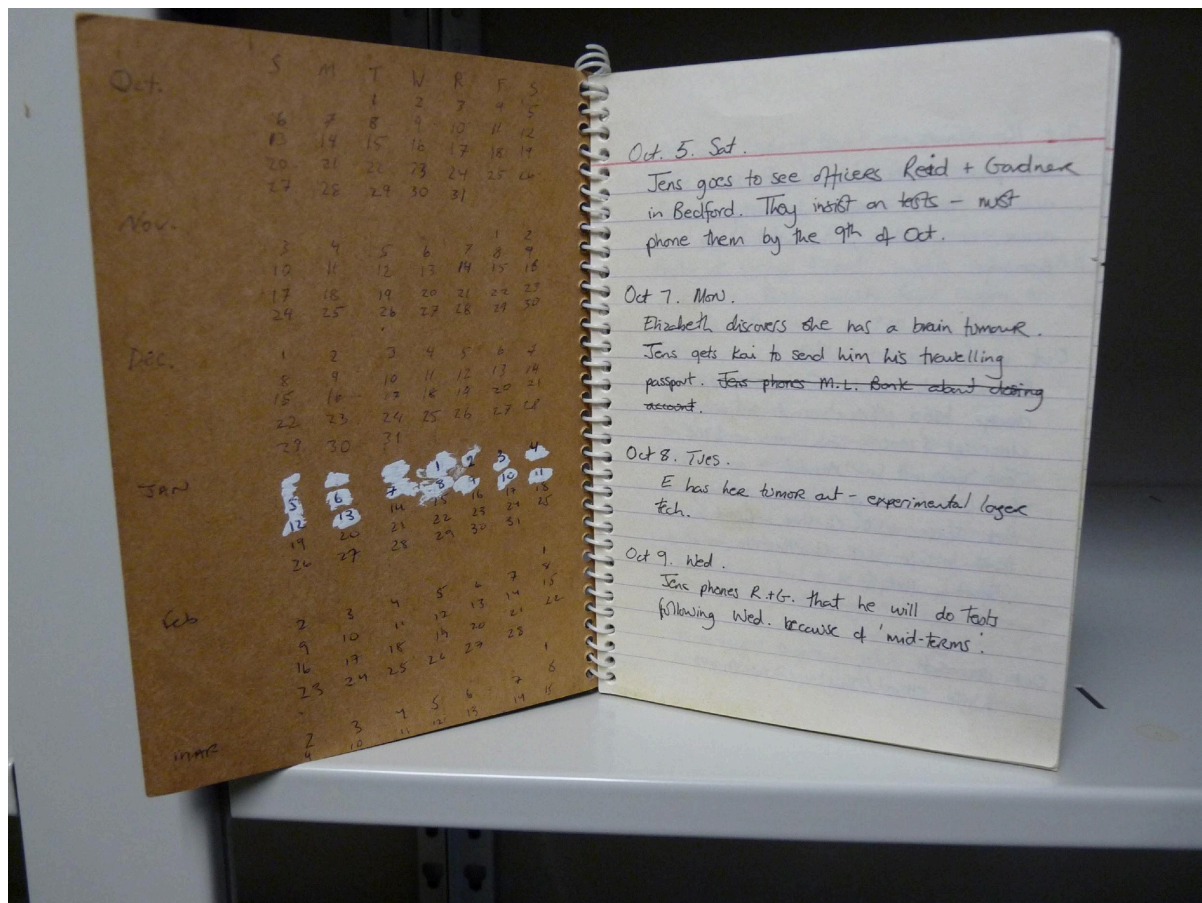 S M T W R F S
Oct. 1 2 3 4 5
6 7 8 9 10 11 12
13 14 15 16 17 18 19
20 21 22 23 24 25 26
27 28 29 30 31
Nov. 1 2
3 4 5 6 7 8 9
10 11 12 13 14 15 16
17 18 19 20 21 22 23
24 25 26 27 28 29 30
Dec. 1 2 3 4 5 6 7
8 9 10 11 12 13 14
15 16 17 18 19 20 21
22 23 24 25 26 27 28
29 30 31
JAN 1 2 3 4
5 6 7 8 9 10 11
12 13 14 15 16 17 18
19 20 21 22 23 24 25
26 27 28 29 30 31
Feb 1
2 3 4 5 6 7 8
9 10 11 12 13 14 15
16 17 18 19 20 21 22
23 24 25 26 27 28
MAR 1
2 3 4 5 6 7 8
9 10 11 12 13 14 15
Oct. 5. Sat.
Jens goes to see officers Reid + Gardner
in Bedford. They insist on tests – must
phone them by the 9th of Oct.
Oct 7. Mon.
Elizabeth discovers she has a brain tumour.
Jens gets Kai to send him his travelling
passport. Jens phones M.L. Bank about closing
account.
Oct 8. Tues.
E has her tumor out – experimental lazer
tech.
Oct 9. Wed.
Jens phones R.+G. that he will do tests
following Wed. because of 'mid-terms'.